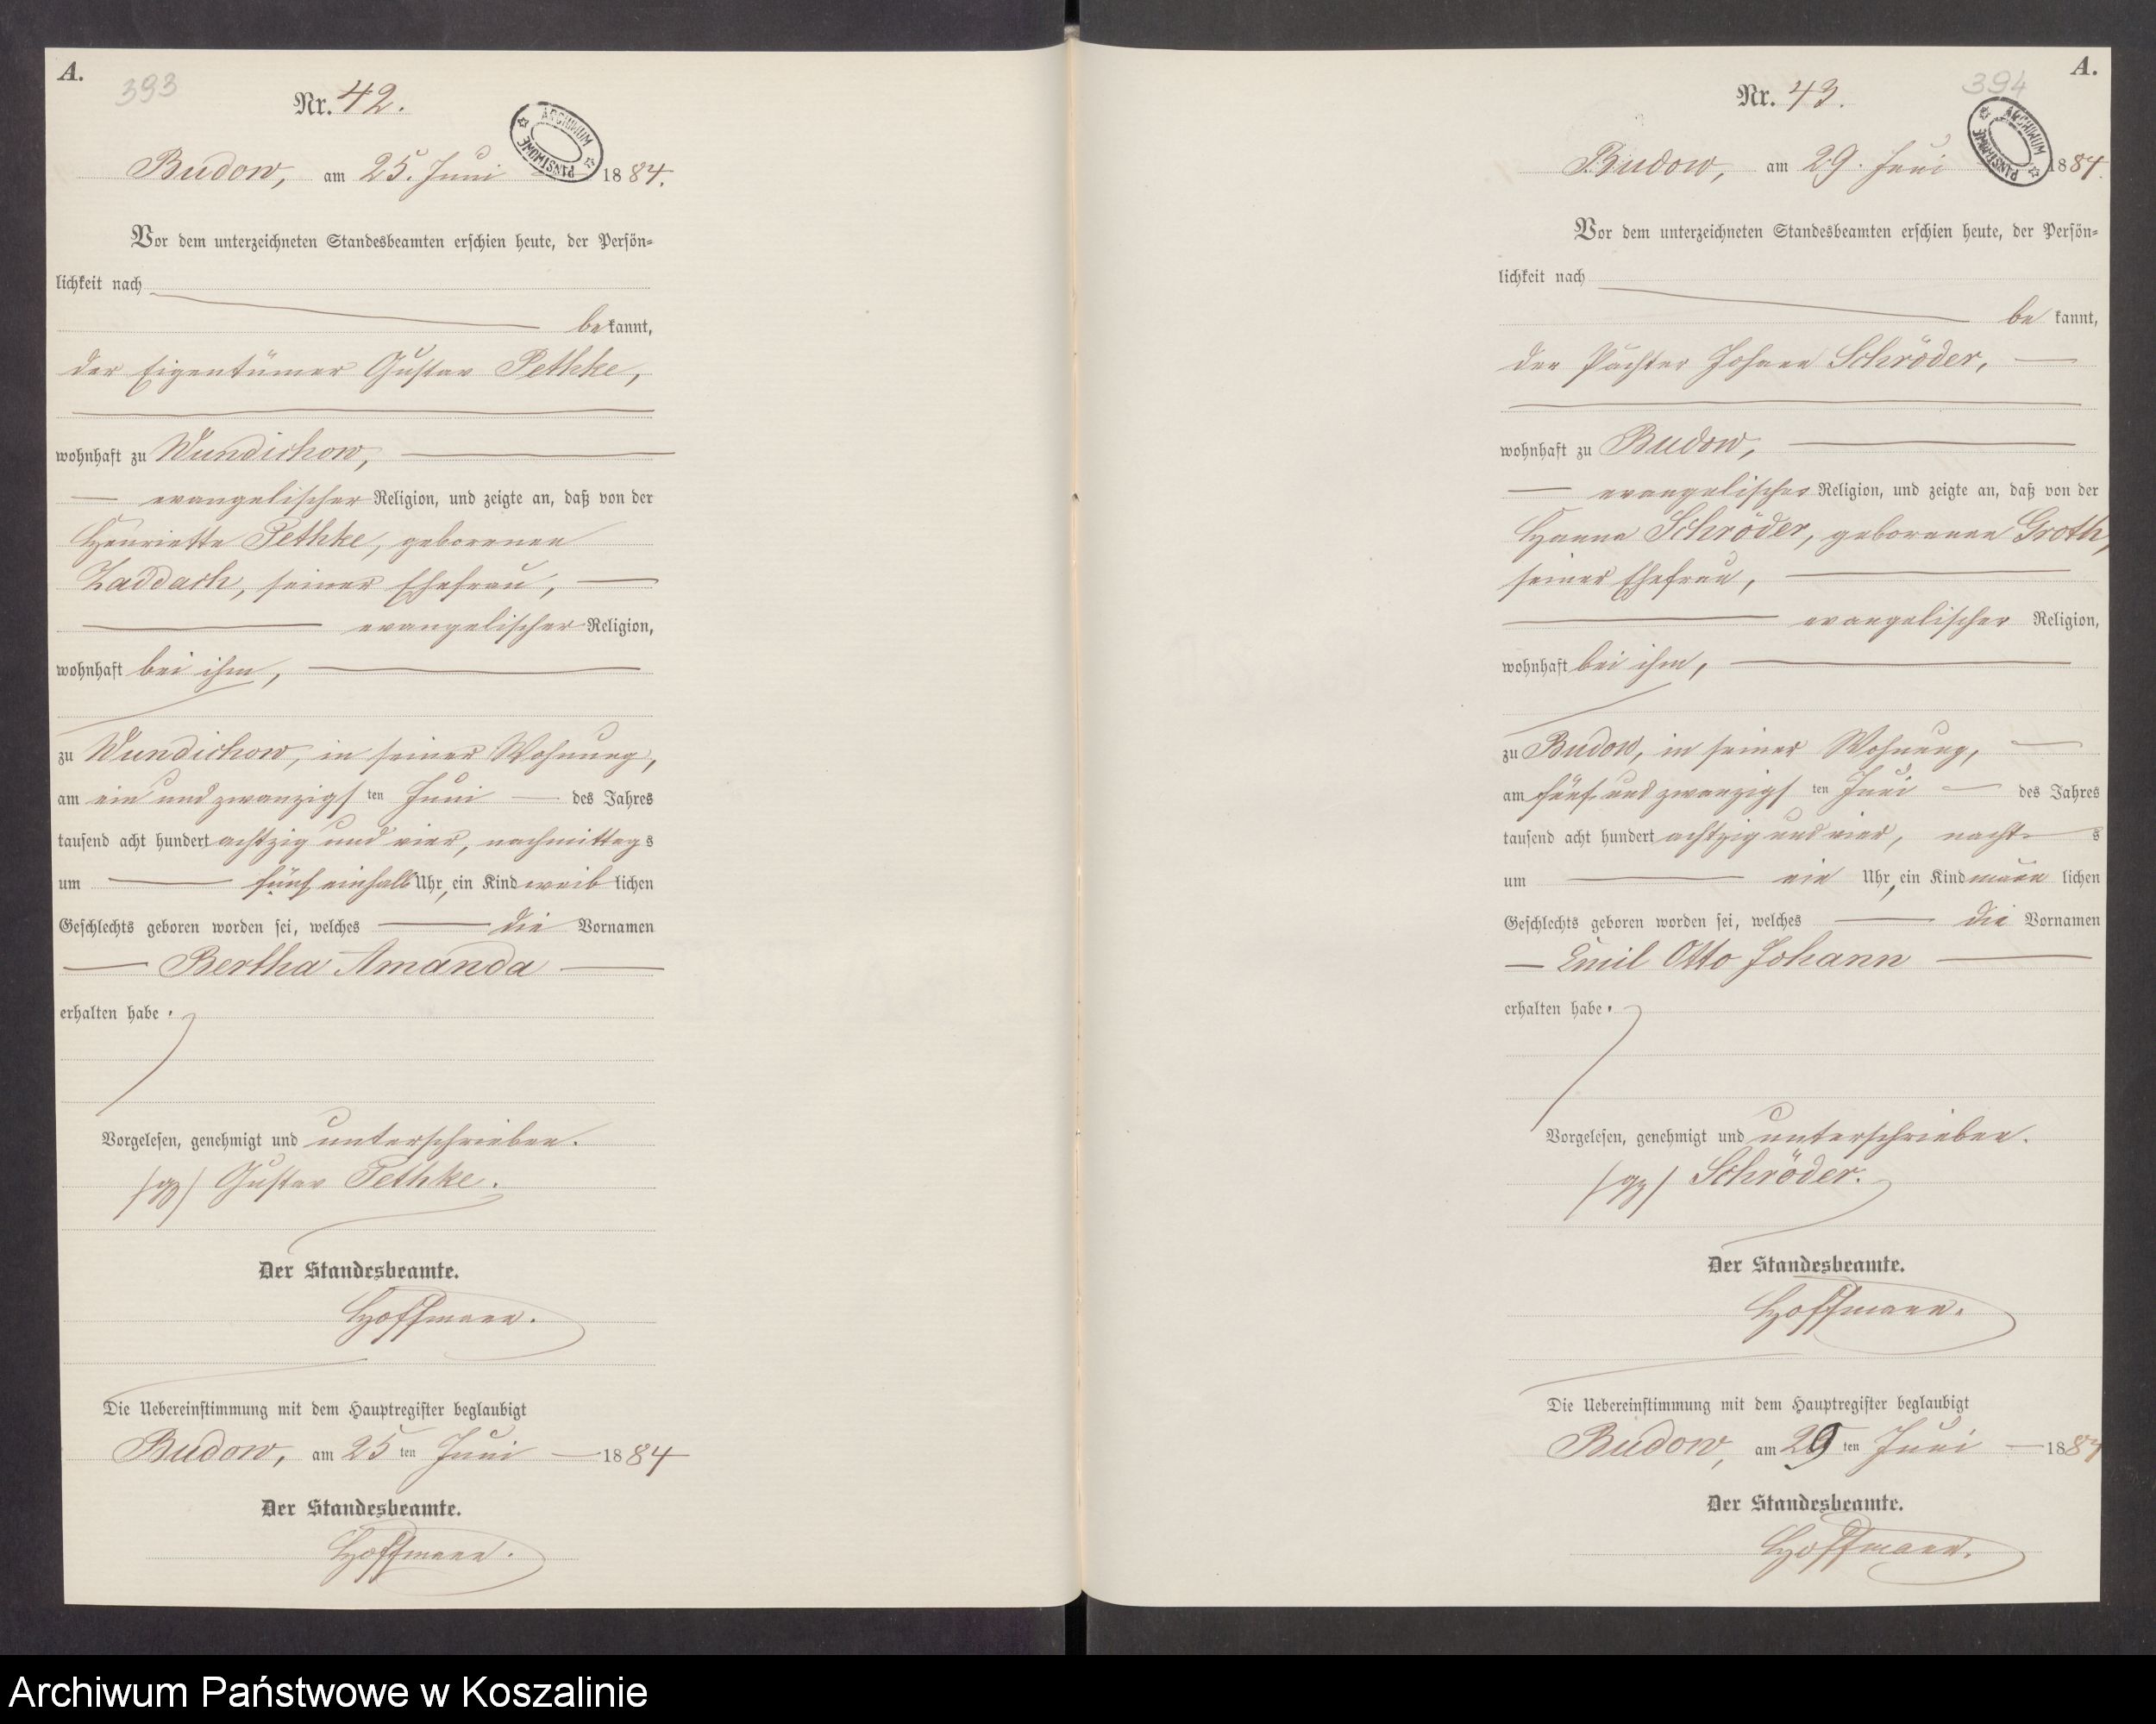 A.
393
Nr. 42.
ARCHIWUM PAŃSTWOWE
Budow, am 25. Juni 1884.
Vor dem unterzeichneten Standesbeamten erschien heute, der Persön=
lichkeit nach
bekannt,
der Eigentümer Gustav Pethke,
wohnhaft zu Wundichow,
evangelischer Religion, und zeigte an, daß von der
Henriette Pethke, geborenen
Zaddach, seiner Ehefrau,
evangelischer Religion,
wohnhaft bei ihm,
zu Wundichow, in seiner Wohnung,
am ein und zwanzigsten Juni des Jahres
tausend acht hundert achtzig und vier, nachmittags
um fünf einhalb Uhr, ein Kind weiblichen
Geschlechts geboren worden sei, welches die Vornamen
Bertha Amanda
erhalten habe.
Vorgelesen, genehmigt und unterschrieben.
(gz) Gustav Pethke.
Der Standesbeamte.
Hoffmann.
Die Uebereinstimmung mit dem Hauptregister beglaubigt
Budow, am 25ten Juni 1884
Der Standesbeamte.
Hoffmann.
A.
394
Nr. 43.
ARCHIWUM PAŃSTWOWE
Budow, am 29. Juni 1884.
Vor dem unterzeichneten Standesbeamten erschien heute, der Persön=
lichkeit nach
bekannt,
der Pächter Johann Schröder,
wohnhaft zu Budow,
evangelischer Religion, und zeigte an, daß von der
Hanna Schröder, geborenen Groth,
seiner Ehefrau,
evangelischer Religion,
wohnhaft bei ihm,
zu Budow, in seiner Wohnung,
am fünf und zwanzigsten Juni des Jahres
tausend acht hundert achtzig und vier, nachts
um ein Uhr, ein Kind männlichen
Geschlechts geboren worden sei, welches die Vornamen
Emil Otto Johann
erhalten habe.
Vorgelesen, genehmigt und unterschrieben.
(gz) Schröder.
Der Standesbeamte.
Hoffmann.
Die Uebereinstimmung mit dem Hauptregister beglaubigt
Budow, am 29ten Juni 1884
Der Standesbeamte.
Hoffmann.
Archiwum Państwowe w Koszalinie